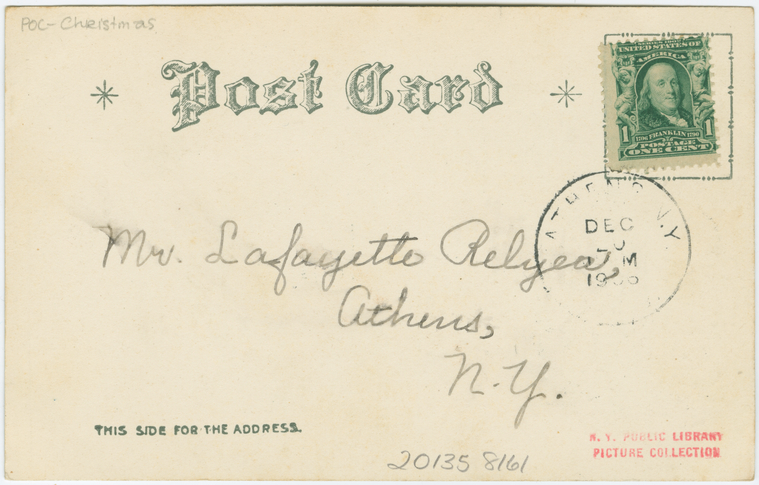 POC-Christmas
Post Card
UNITED STATES OF
AMERICA
1 FRANKLIN 1
POSTAGE
ONE CENT
ATHENS N.Y.
DEC
M
Mr. Lafayette Relyea,
Athens,
N.Y.
THIS SIDE FOR THE ADDRESS.
N. Y. PUBLIC LIBRARY
PICTURE COLLECTION
20135 8161